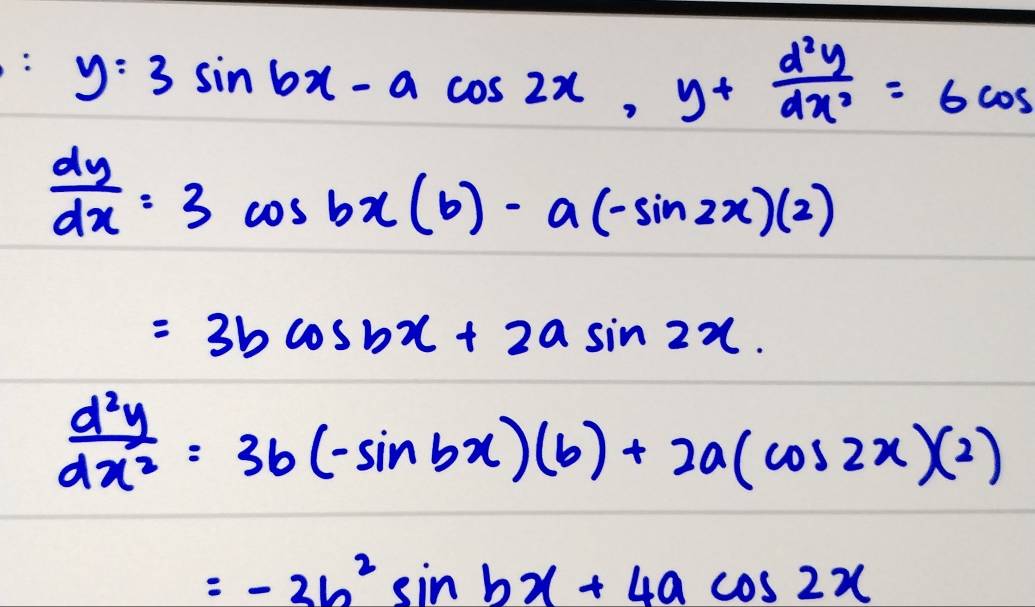 : y = 3 sin bx - a cos 2x , y + d²y/dx² = 6 cos
dy/dx = 3 cos bx (b) - a (-sin 2x)(2)
= 3b cos bx + 2a sin 2x.
d²y/dx² = 3b (-sin bx)(b) + 2a (cos 2x)(2)
= -3b² sin bx + 4a cos 2x